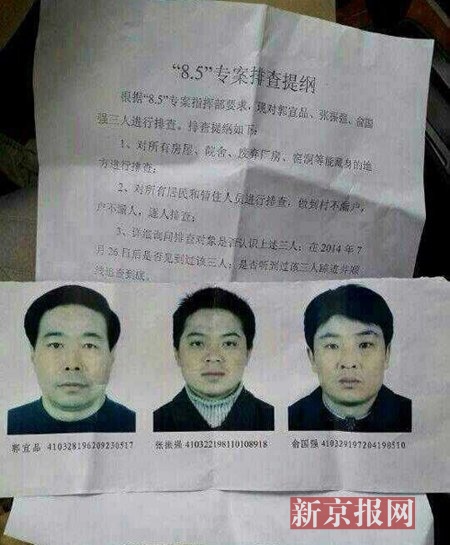 “8.5”专案排查提纲
根据“8.5”专案指挥部要求，现对郭宜品、张振强、俞国
强三人进行排查。排查提纲如下：
1、对所有房屋、院舍、废弃厂房、窑洞等能藏身的地
方进行排查；
2、对所有居民和暂住人员进行排查，做到村不漏户，
户不漏人，逐人排查；
3、详细询问排查对象是否认识上述三人；在2014年7
月26日后是否见到过该三人；是否听到过该三人踪迹并顺
线追查到底。
郭宜品 410328196209230517
张振强 410322198110108918
俞国强 410329197204190510
新京报网